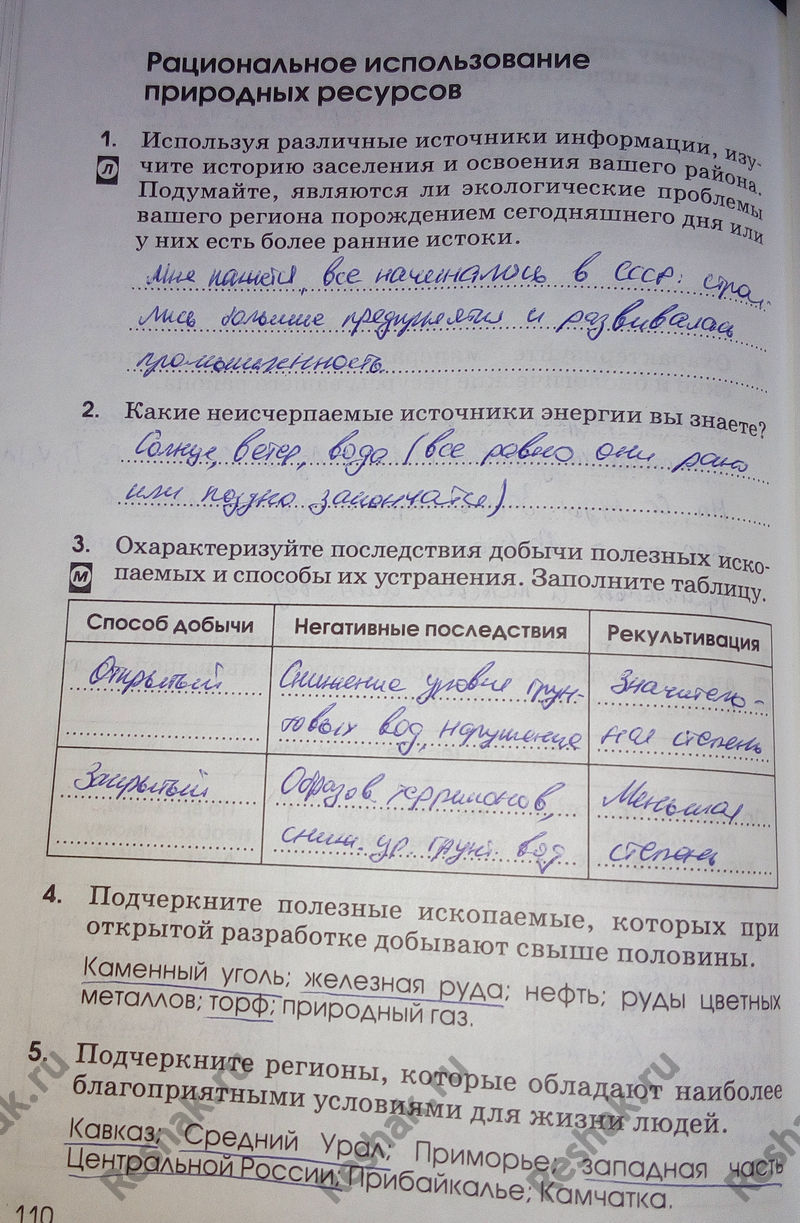 Рациональное использование
природных ресурсов
1. Используя различные источники информации, изу-
Л чите историю заселения и освоения вашего района.
Подумайте, являются ли экологические проблемы
вашего региона порождением сегодняшнего дня или
у них есть более ранние истоки.
Мне кажется, все начиналось в СССР: строи
лись большие предприятия и развивалась
промышленность
2. Какие неисчерпаемые источники энергии вы знаете?
Солнце, ветер, вода (все равно они рано
или поздно закончатся)
3. Охарактеризуйте последствия добычи полезных иско-
М паемых и способы их устранения. Заполните таблицу.
Способ добычи Негативные последствия Рекультивация
Открытый Снижение уровня грун- Значитель-
товых вод, нарушение ная степень
Закрытый Образов. терриконов, Меньшая
сниж. ур. грунт. вод степень
4. Подчеркните полезные ископаемые, которых при
открытой разработке добывают свыше половины.
Каменный уголь; железная руда; нефть; руды цветных
металлов; торф; природный газ.
5. Подчеркните регионы, которые обладают наиболее
благоприятными условиями для жизни людей.
Кавказ; Средний Урал; Приморье; западная часть
Центральной России; Прибайкалье; Камчатка.
110
ak.ru
Reshak.ru
Reshak.ru
Reshak.ru